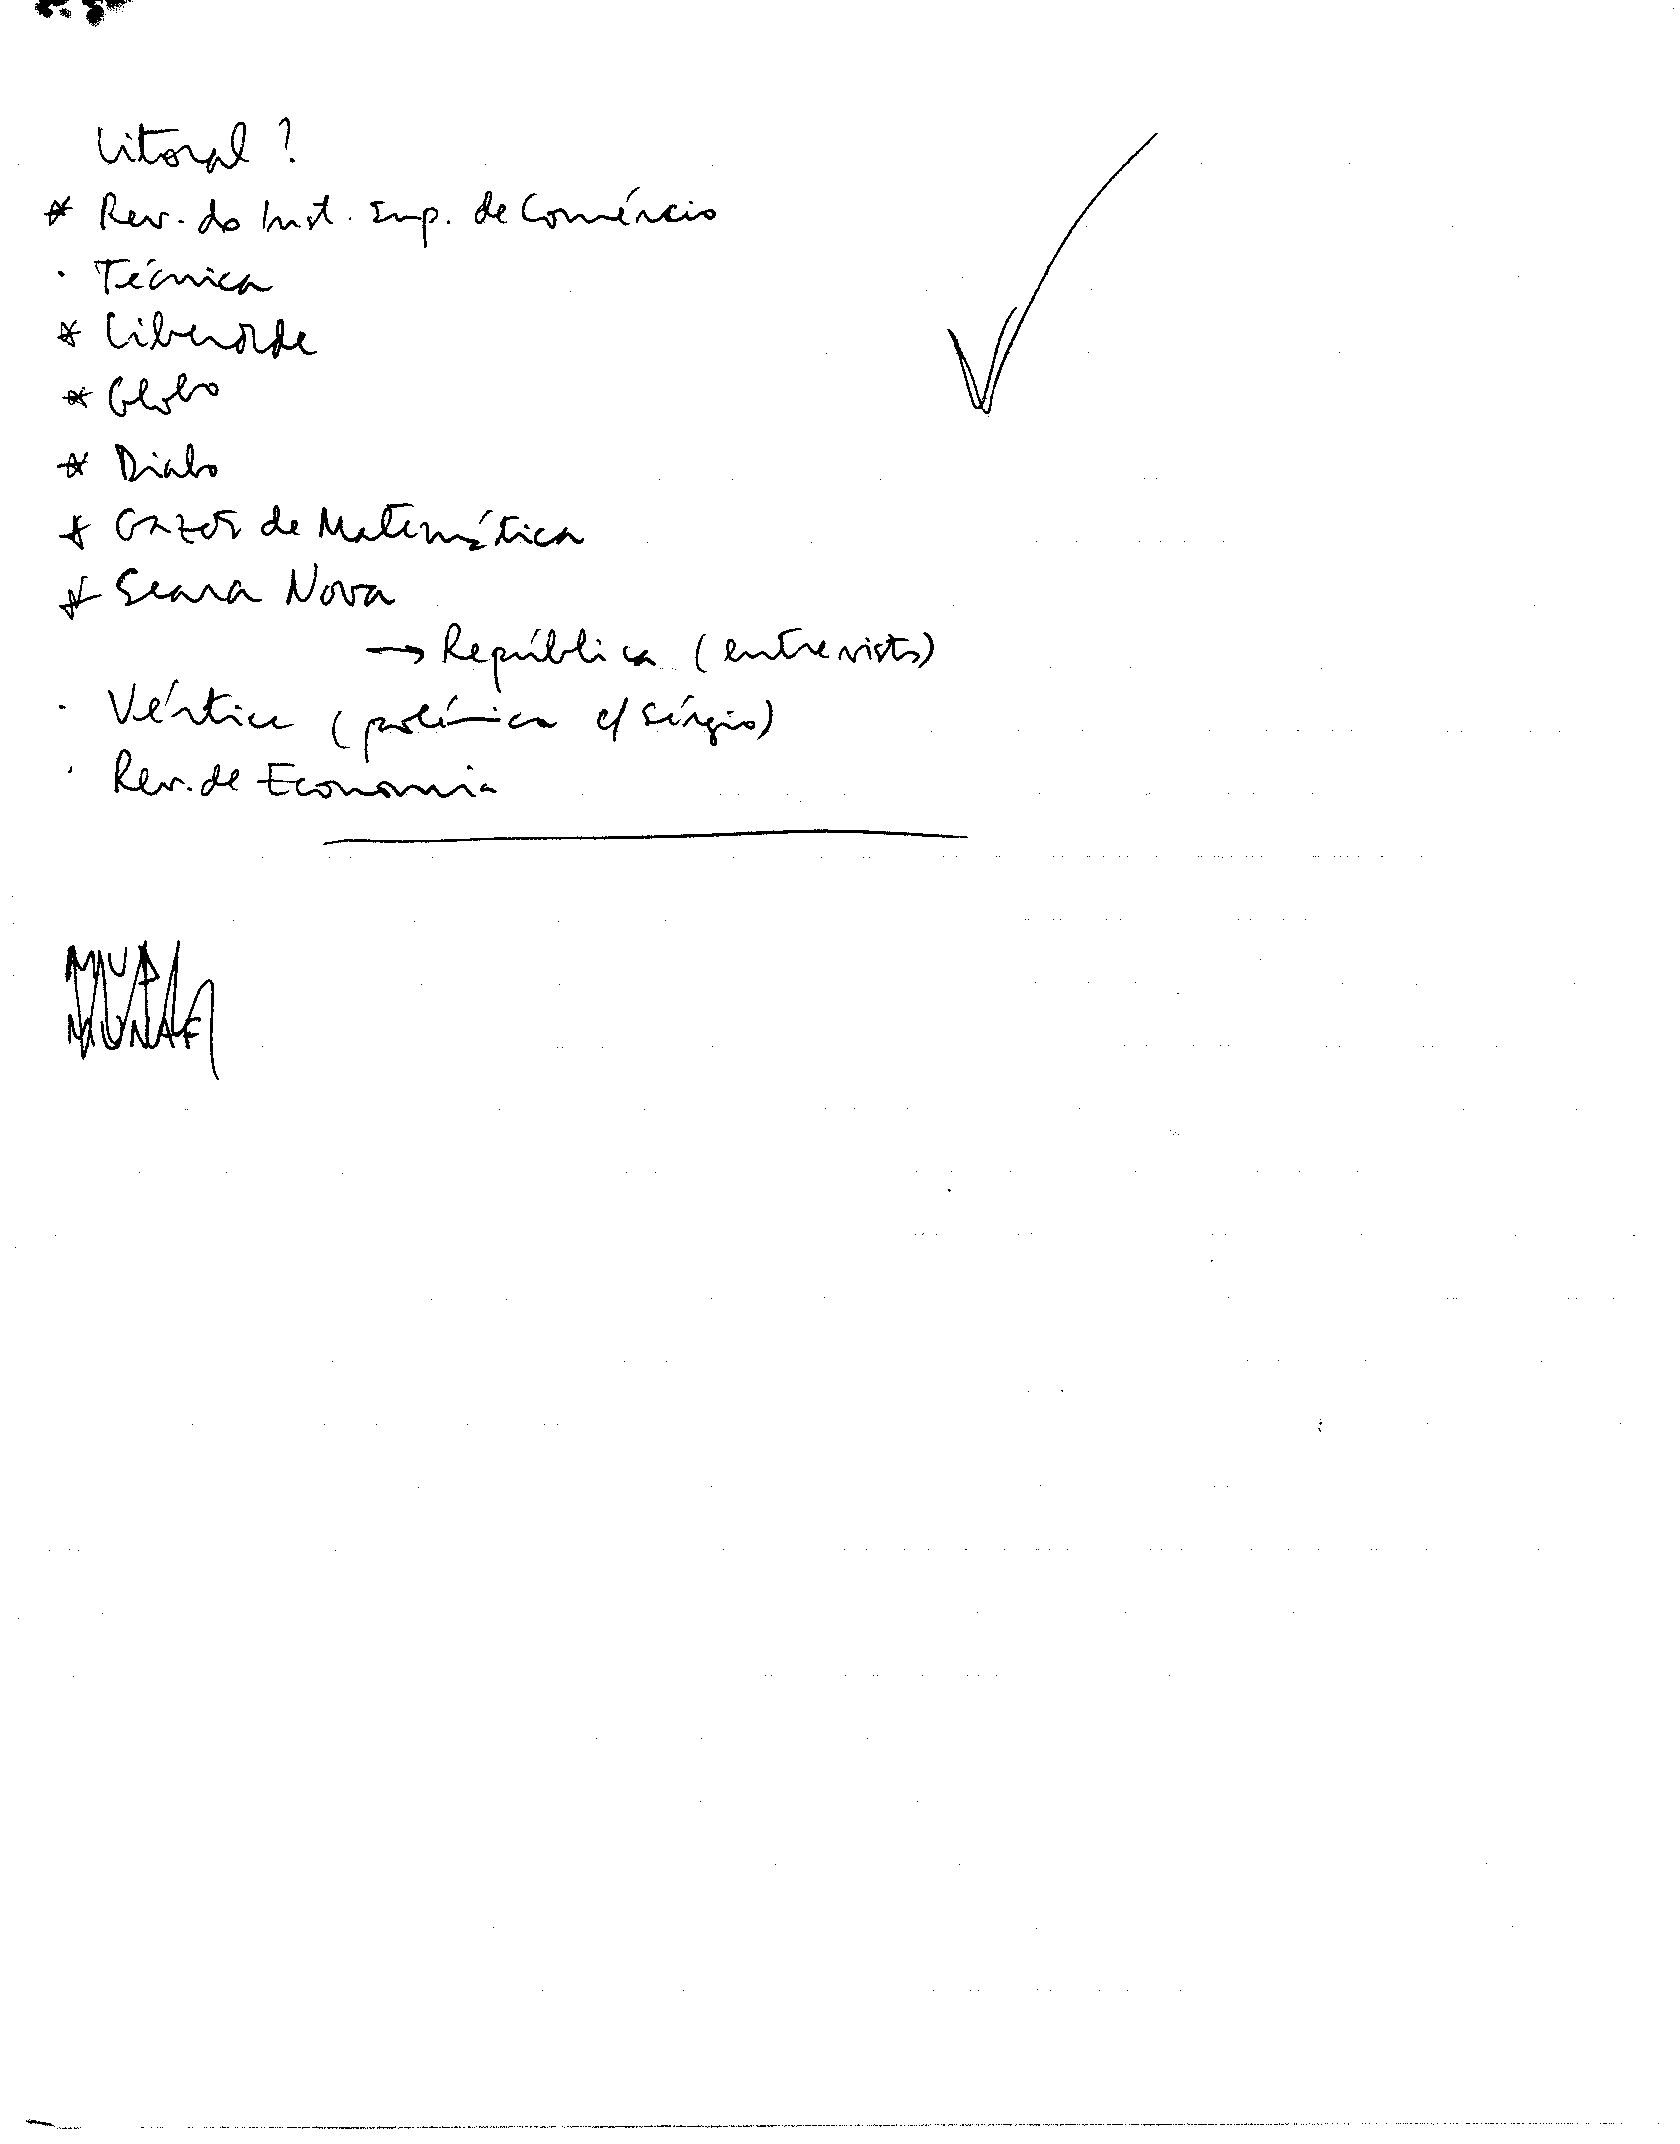 Litoral ?
* Rev. do Inst. Sup. de Comércio
· Técnica
* Liberdade
* Globo
* Diabo
* Gazeta de Matemática
* Seara Nova
→ República (entrevista)
· Vértice (polémica c/ Sérgio)
· Rev. de Economia